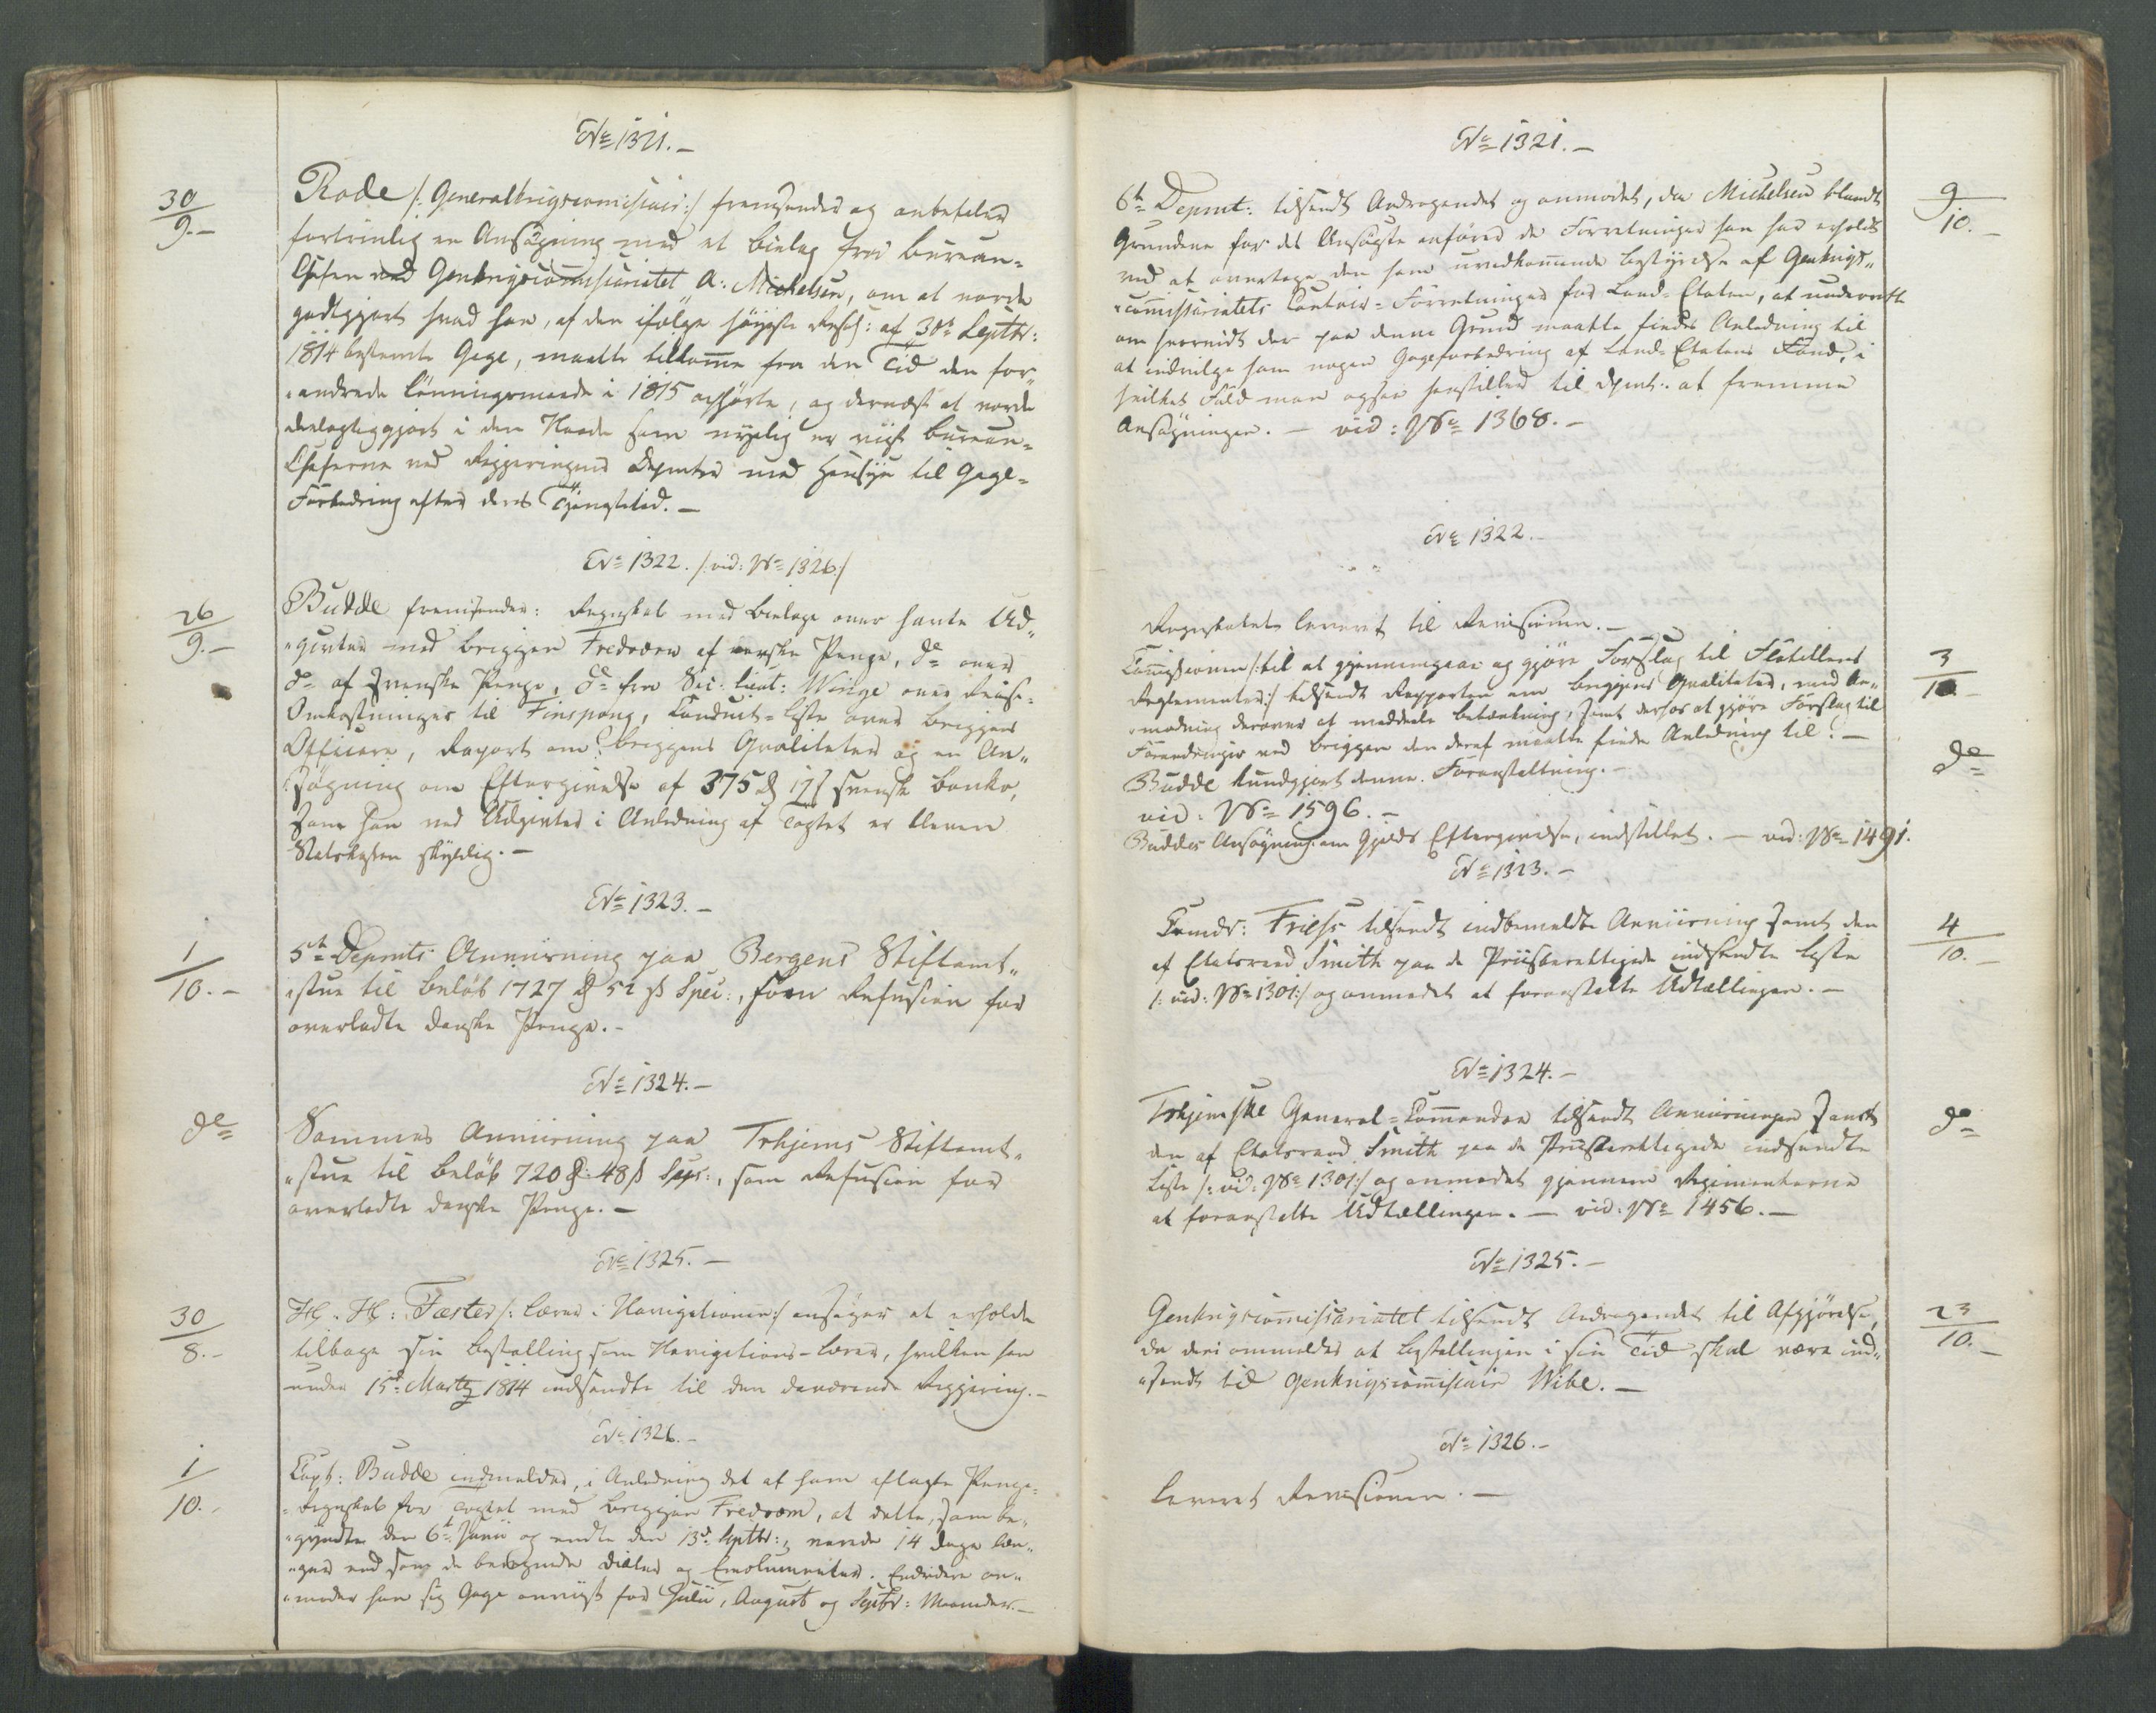 No 1321.–
30/9.–
Rode /: Generalkrigscommissair:/ fremsender og anbefaler
fortrinlig en Ansøgning med et Bielag fra Bureau=
Chefen ved Genkrigscommissariatet A: Michelsen, om at vorde
godtgjort hvad han, af den ifølge høyeste Resol: af 30te Septbr:
1814 bestemte Gage, maatte tilkomme fra den Tid den for„
„andrede Lønningsmaade i 1815 ophørte, og dernæst at vorde
deelagtiggjort i den Naade som nyelig er viist Bureau=
Cheferne ved Regjeringens Depmter med Hensyn til Gage=
Forbedring efter deres Tjenestetid.–
No 1322. /: vid: No 1326:/
26/9.–
Budde fremsender: Regnskab med Bielage over havte Ud„
„givter med Briggen Fredøen af norske Penge, do over
do af Svenske Penge, do fra Sec: Lieut: Winge over Reise=
Omkostninger til Finspong, Conduit=Liste over Briggens
Officiere, Raport om Briggens Qvaliteter og en An„
„søgning om Eftergivelse af 375 17 svensk Banko,
som han ved Udgivter i Anledning af Togtet er bleven
Statskassen skyldig.–
No 1323.–
1/10.–
5te Depmts Anviisning paa Bergens Stiftamt„
„stue til Beløb 1727 52 ß Spec:, som Refusion for
overladte danske Penge.–
No 1324.–
do
Sammes Anviisning paa Trhjems Stiftamt„
„stue til Beløb 720 48 ß Spec:, som Refusion for
overladte danske Penge.–
No 1325.–
30/8.–
H. H: Fæster /: Lærer i Navigationen:/ ansøger at erholde
tilbage sin Bestalling som Navigations-Lærer, hvilken han
under 15de Marty 1814 indsendte til den daværende Regjering.–
No 1326.–
1/10.–
Capt: Budde indmelder, i Anledning det af ham aflagte Penge=
=Regnskab for Togtet med Briggen Fredøen, at dette, som be„
„gyndte den 6te Junii og endte den 13de Septbr:, varede 14 Dage læn„
„ger end som de beregnede Diæter og Emolumenter. Endvidere an„
„moder han sig Gage anviist for Julii, August og Septbr: Maaneder.–
No 1321.–
9/10.–
6te Depmt: tilsendt Andragendet og anmodet, da Michelsen blandt
Grundene for det Ansøgte anfører de Forretninger han har erholdt
ved at overtage den ham uvedkommende Bestyrelse af Genkrigs„
„commissariatets Contoir=Forretninger for Land=Etaten, at underrette
om hvorvidt der paa denne Grund maatte findes Anledning til
at indvilge ham nogen Gageforbedring af Land=Etatens Fond, i
hvilket Fald man ogsaa henstiller til Depmt: at fremme
Ansøgningen.– vid: No 1368.–
No 1322.–
Regnskabet leveret til Revisionen.–
3/10.–
Commissionen /: til at gjennemgaae og gjøre Forslag til Flotillens
Reglementer:/ tilsendt Rapporten om Briggens Qvaliteter, med An„
„modning derover at meddeele Betænkning, samt derhos at gjøre Forslag til
Forandringer ved Briggen den deraf maatte finde Anledning til.–
do
Budde kundgjort denne Foranstaltning.–
vid: No 1596.–
Buddes Ansøgning om Gjelds Eftergivelse, indstillet.– vid: No 1491.
No 1323.–
4/10.–
Comdr: Friess tilsendt indbemeldte Anviisning samt den
af Etatsraad Smith paa de Priisberettigede indsendte Liste
/: vid: No 1301:/ og anmodet at foranstalte Udtællingen.–
No 1324.–
do
Trhjemske General=Commandoe tilsendt Anviisningen samt
den af Etatsraad Smith paa de Priisberettigede indsendte
Liste /: vid: No 1301:/ og anmodet gjennem Regimenterne
at foranstalte Udtællingen.– vid: No 1456.–
No 1325.–
23/10.–
Genkrigscommissariatet tilsendt Andragendet til Afgjørelse,
da deri ommeldes at Bestallingen i sin Tid skal være ind„
„sendt til Genkrigscommissair Wibe.–
No 1326.–
Leveret Revisionen.–